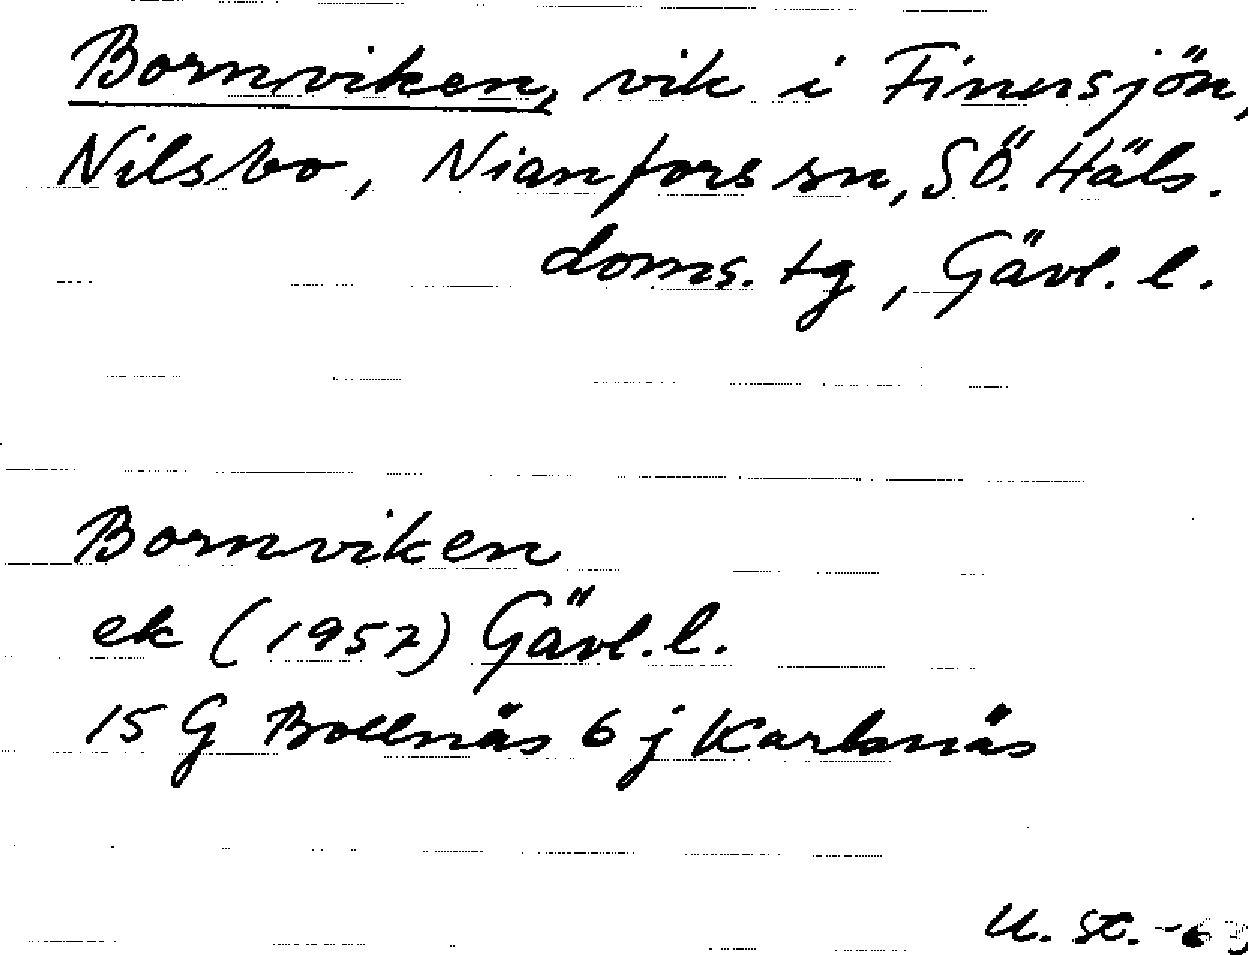 Bornviken, vik i Finnsjön,
Nilsbo, Nianfors sn, SÖ. Häls.
doms. tg, Gävl. l.
Bornviken
ek (1952) Gävl. l.
15 G Bollnäs 6 j Karlsnäs
U. St. -63